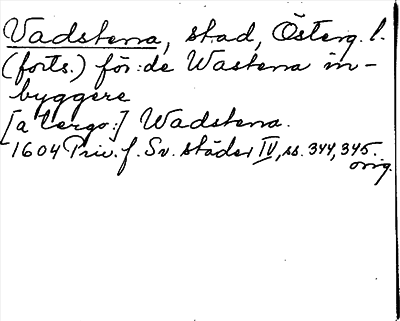 Vadstena, stad, Österg. l.
(forts.) för: de Wastena in-
byggere
[a tergo:] Wadstena.
1604 Priv. f. Sv. städer IV, ss. 344, 345.
orig.